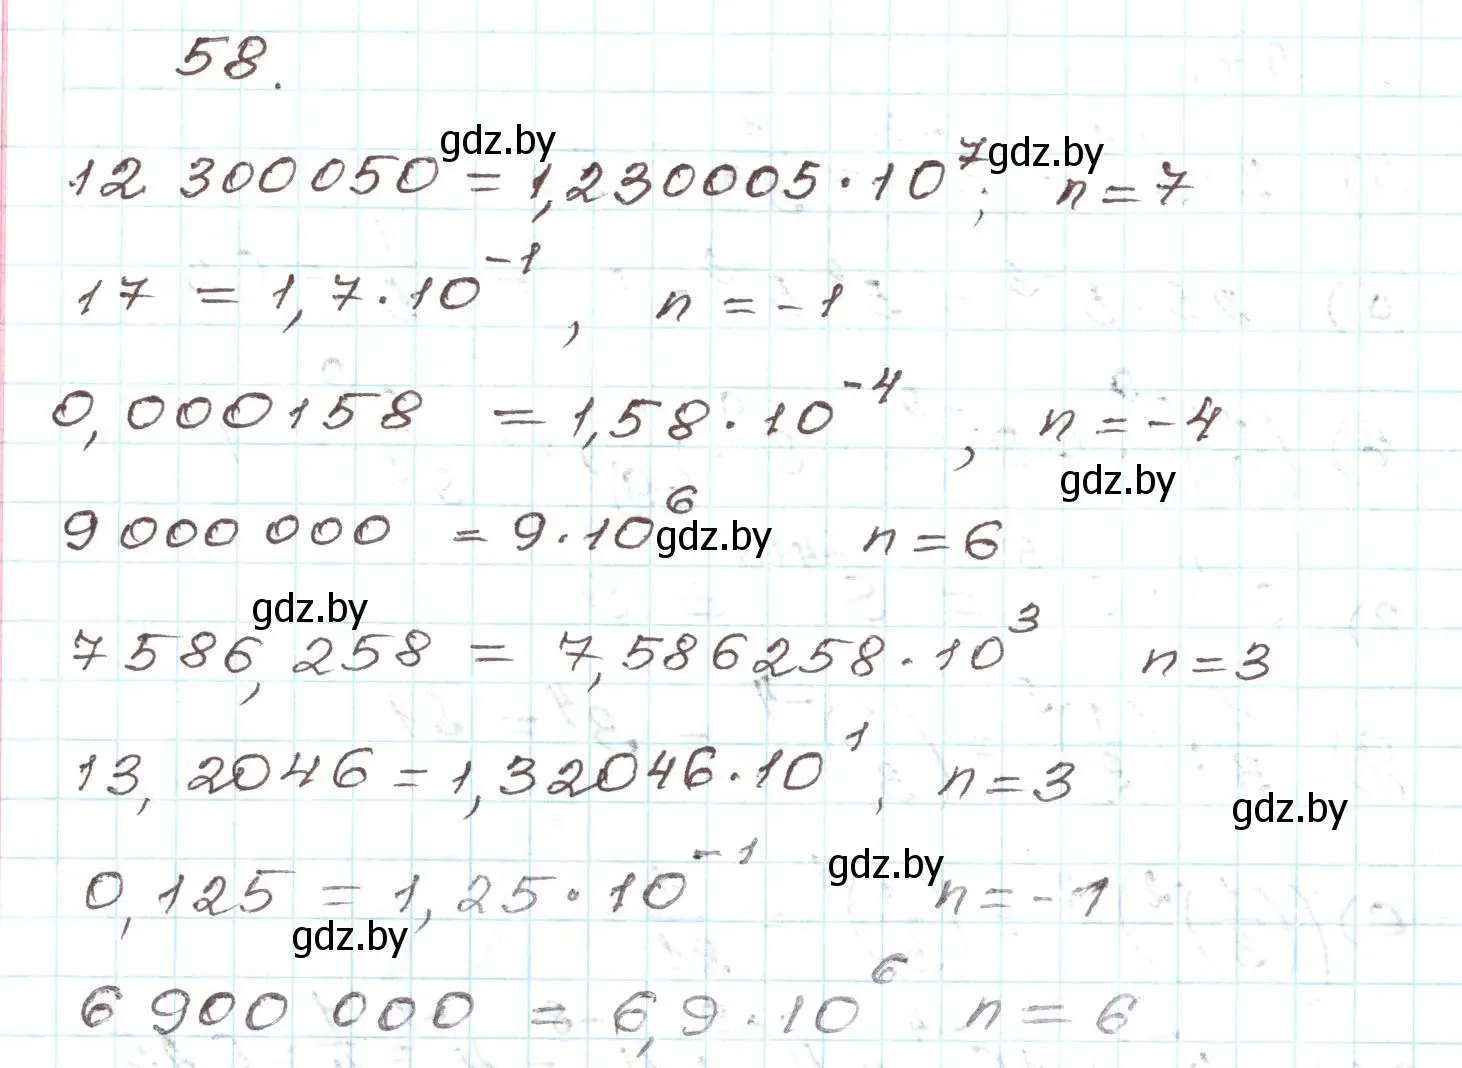 58.
12 300050 = 1,230005 · 10^7; n = 7
17 = 1,7 · 10^-1, n = -1
0,000158 = 1,58 · 10^-4, n = -4
9 000 000 = 9 · 10^6 n = 6
7586,258 = 7,586258 · 10^3 n = 3
13,2046 = 1,32046 · 10^1, n = 3
0,125 = 1,25 · 10^-1 n = -1
6 900 000 = 6,9 · 10^6 n = 6
gdz.by
gdz.by
gdz.by
gdz.by
gdz.by
gdz.by
gdz.by
gdz.by